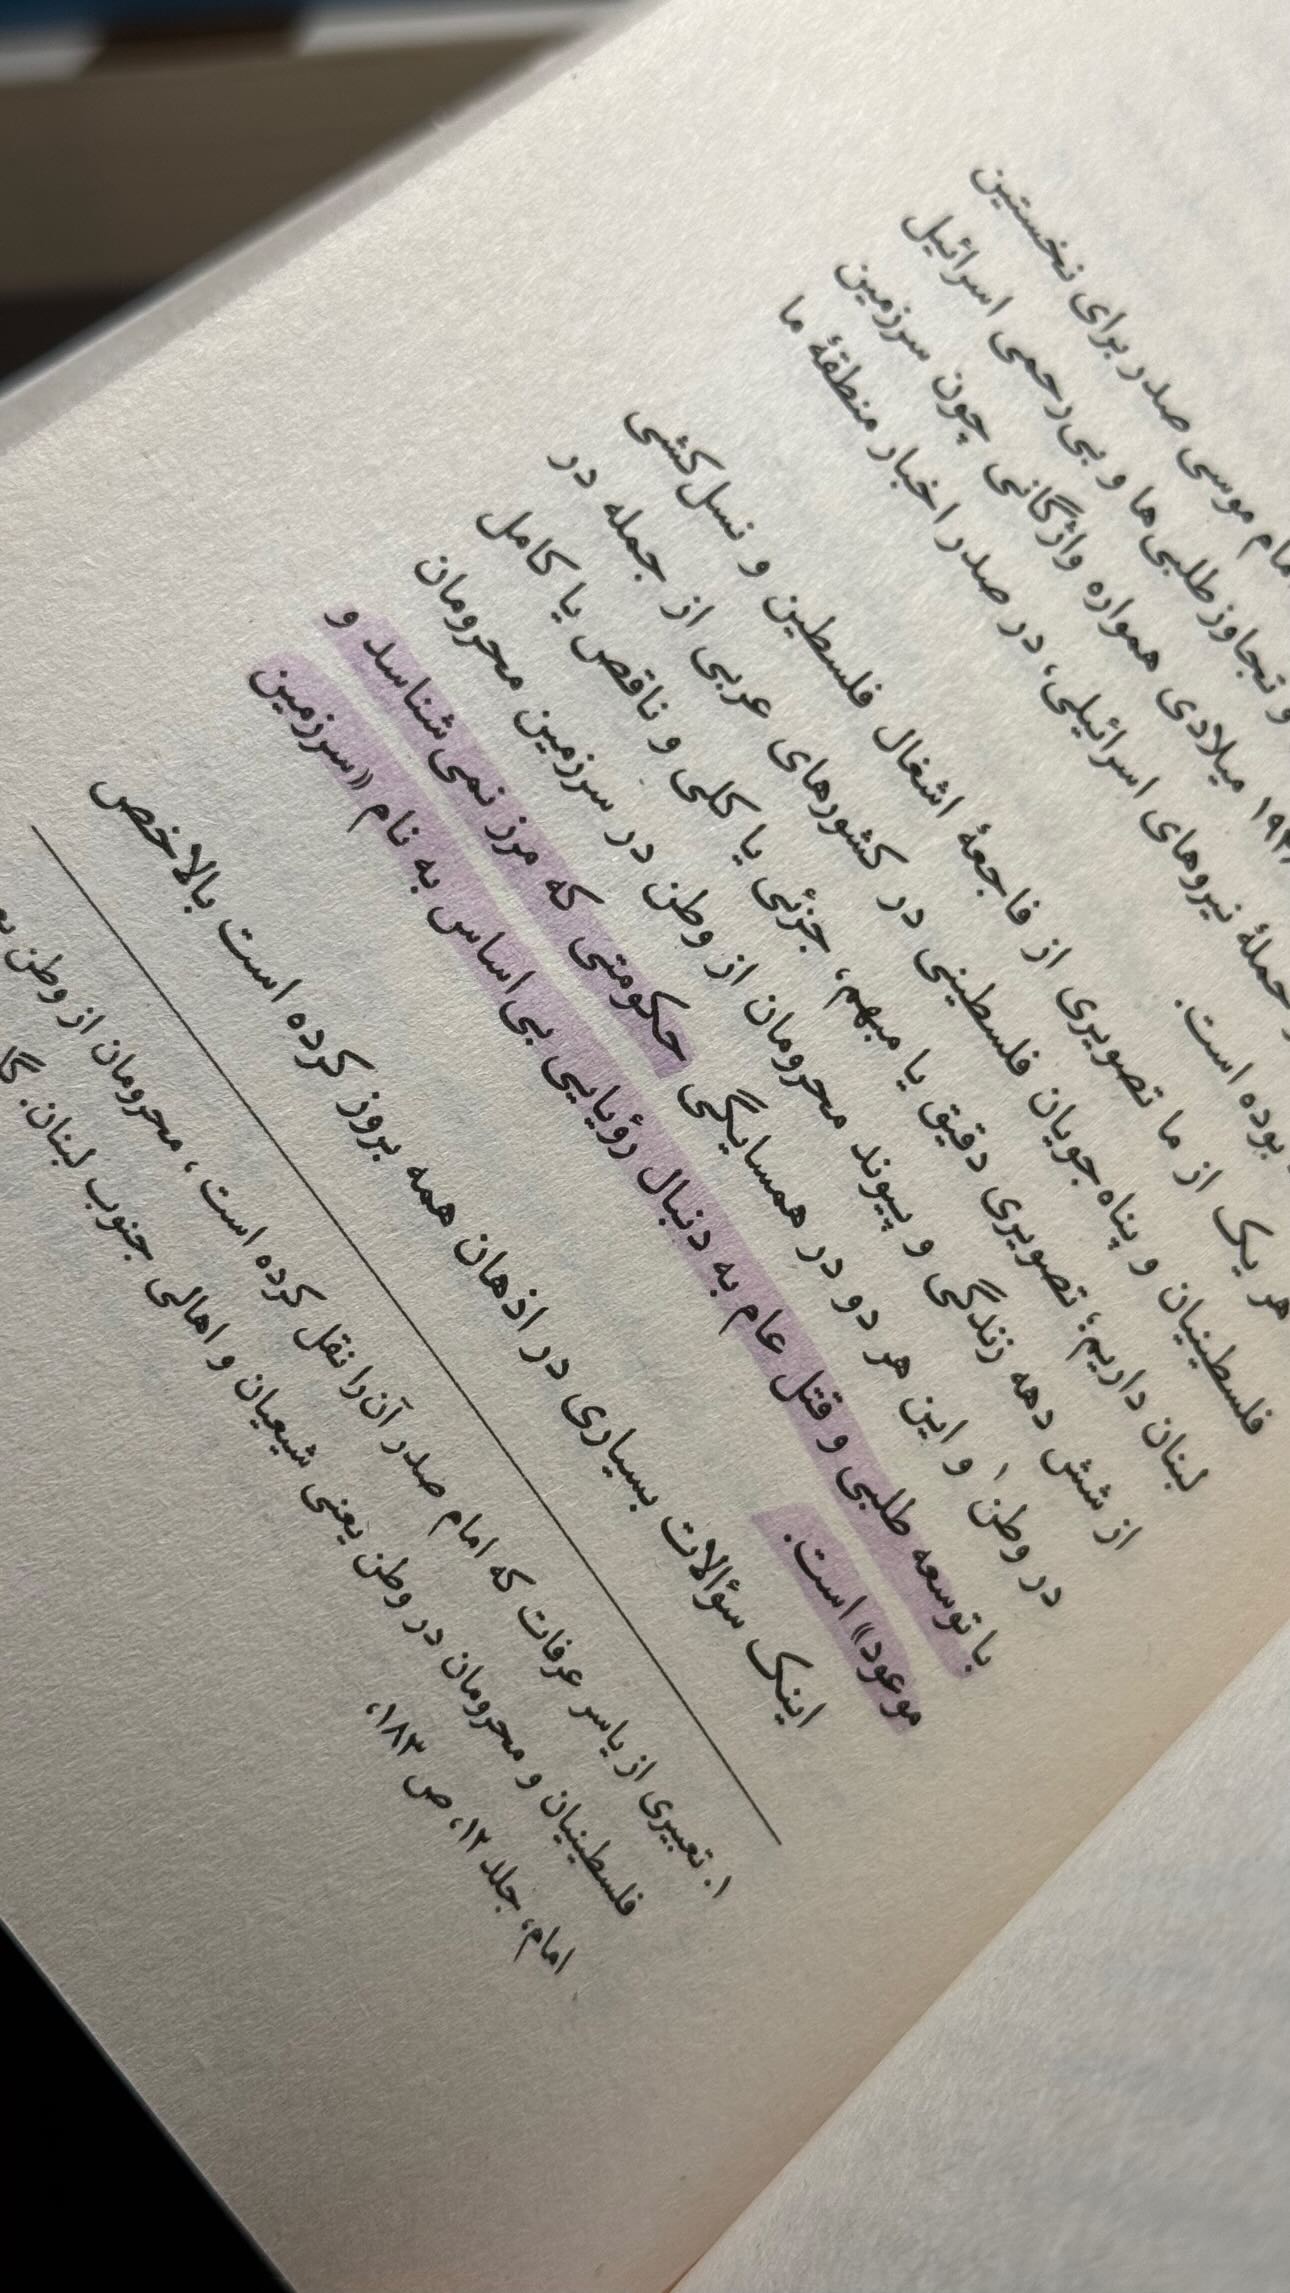 امام موسی صدر برای نخستین
و تجاوزطلبی‌ها و بی‌رحمی اسرائیل
میلادی همواره واژگانی چون سرزمین
حملهٔ نیروهای اسرائیلی، در صدر اخبار منطقهٔ ما
بوده است.
هر یک از ما تصویری از فاجعهٔ اشغال فلسطین و نسل‌کشی
فلسطینیان و پناه‌جویان فلسطینی در کشورهای عربی از جمله در
لبنان داریم؛ تصویری دقیق یا مبهم، جزئی یا کلی و ناقص یا کامل
از شش دهه زندگی و پیوند محرومان از وطن در سرزمین محرومان
در وطن۱ و این هر دو در همسایگی حکومتی که مرز نمی‌شناسد و
با توسعه طلبی و قتل عام به دنبال رؤیایی بی‌اساس به نام «سرزمین
موعود» است.
اینک سؤالات بسیاری در اذهان همه بروز کرده است بالاخص
۱. تعبیری از یاسر عرفات که امام صدر آن را نقل کرده است، محرومان از وطن
فلسطینیان و محرومان در وطن یعنی شیعیان و اهالی جنوب لبنان.
امام، جلد ۱۲، ص ۱۸۳،